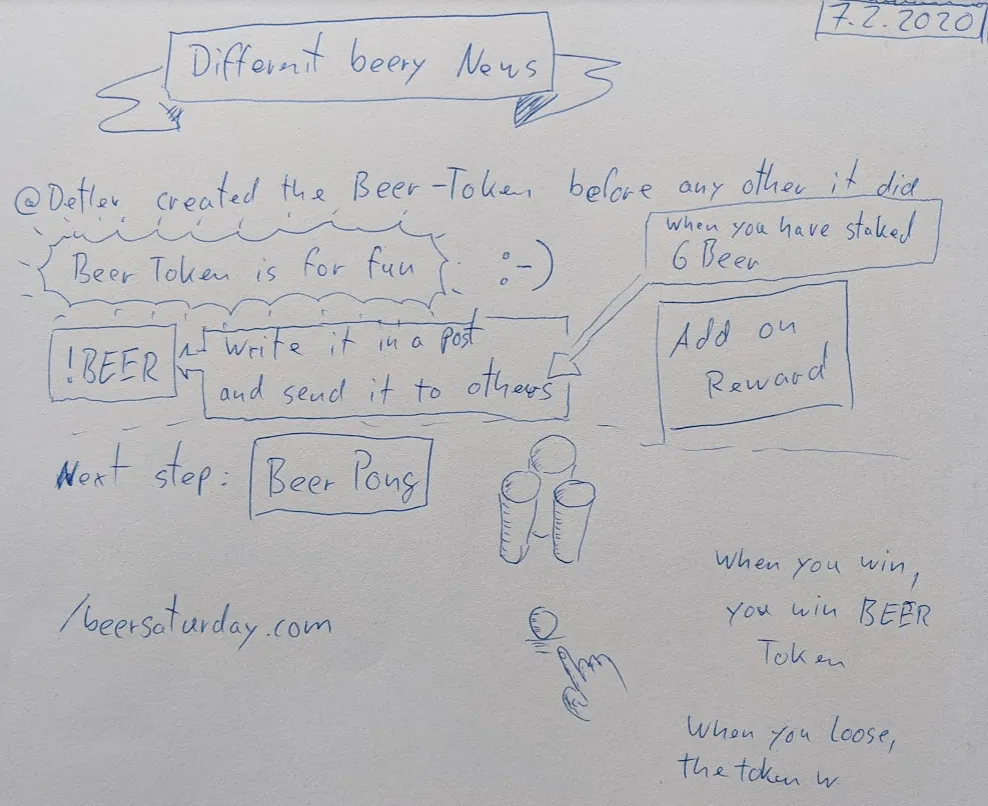 7.2.2020
Different beery News
@Detlev created the Beer-Token before any other it did
when you have staked
6 Beer
Beer Token is for fun :-)
!BEER
Write it in a post
and send it to others
Add on
Reward
Next step: Beer Pong
When you win,
you win BEER
Token
/beersaturday.com
When you loose,
the token w